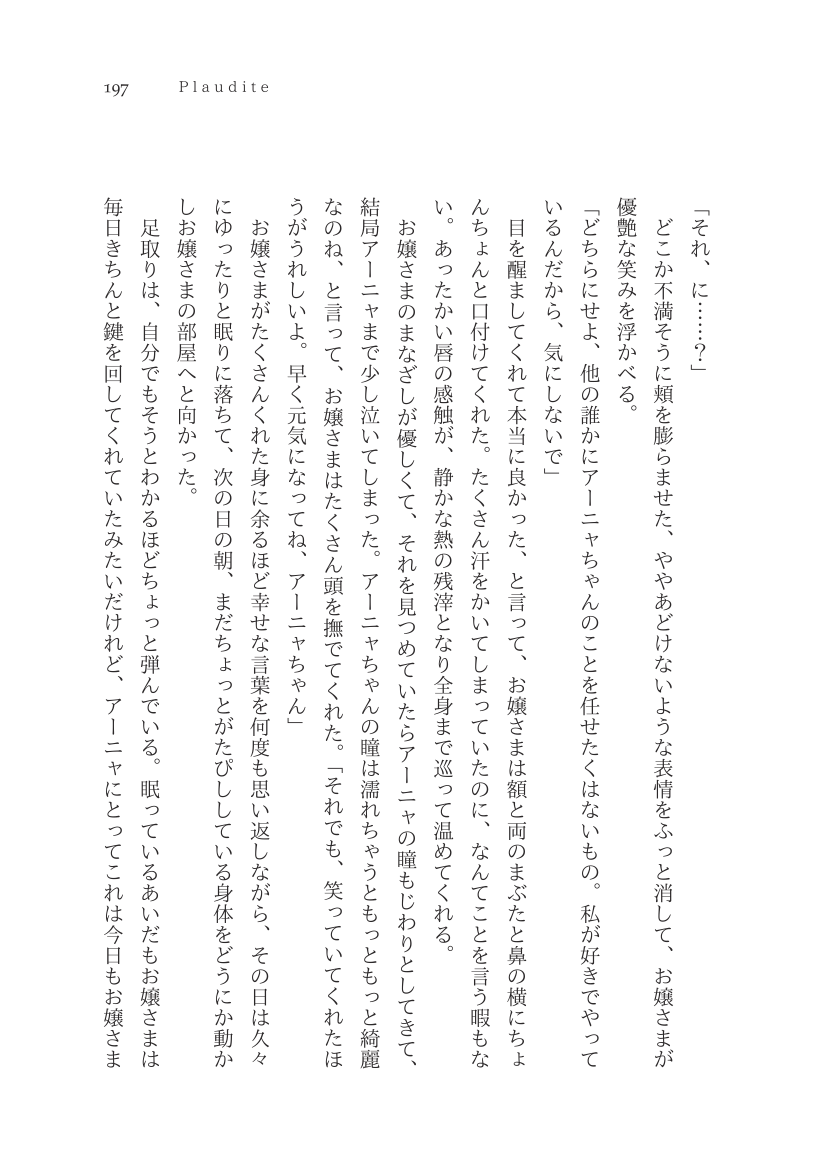 197 Plaudite
「それ、に……？」
　どこか不満そうに頬を膨らませた、ややあどけないような表情をふっと消して、お嬢さまが
優艶な笑みを浮かべる。
「どちらにせよ、他の誰かにアーニャちゃんのことを任せたくはないもの。私が好きでやって
いるんだから、気にしないで」
　目を醒ましてくれて本当に良かった、と言って、お嬢さまは額と両のまぶたと鼻の横にちょ
んちょんと口付けてくれた。たくさん汗をかいてしまっていたのに、なんてことを言う暇もな
い。あったかい唇の感触が、静かな熱の残滓となり全身まで巡って温めてくれる。
　お嬢さまのまなざしが優しくて、それを見つめていたらアーニャの瞳もじわりとしてきて、
結局アーニャまで少し泣いてしまった。アーニャちゃんの瞳は濡れちゃうともっともっと綺麗
なのね、と言って、お嬢さまはたくさん頭を撫でてくれた。「それでも、笑っていてくれたほ
うがうれしいよ。早く元気になってね、アーニャちゃん」
　お嬢さまがたくさんくれた身に余るほど幸せな言葉を何度も思い返しながら、その日は久々
にゆったりと眠りに落ちて、次の日の朝、まだちょっとがたぴししている身体をどうにか動か
しお嬢さまの部屋へと向かった。
　足取りは、自分でもそうとわかるほどちょっと弾んでいる。眠っているあいだもお嬢さまは
毎日きちんと鍵を回してくれていたみたいだけれど、アーニャにとってこれは今日もお嬢さま